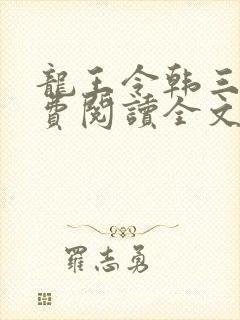 龍王令韩三
費閱讀全文
羅志勇